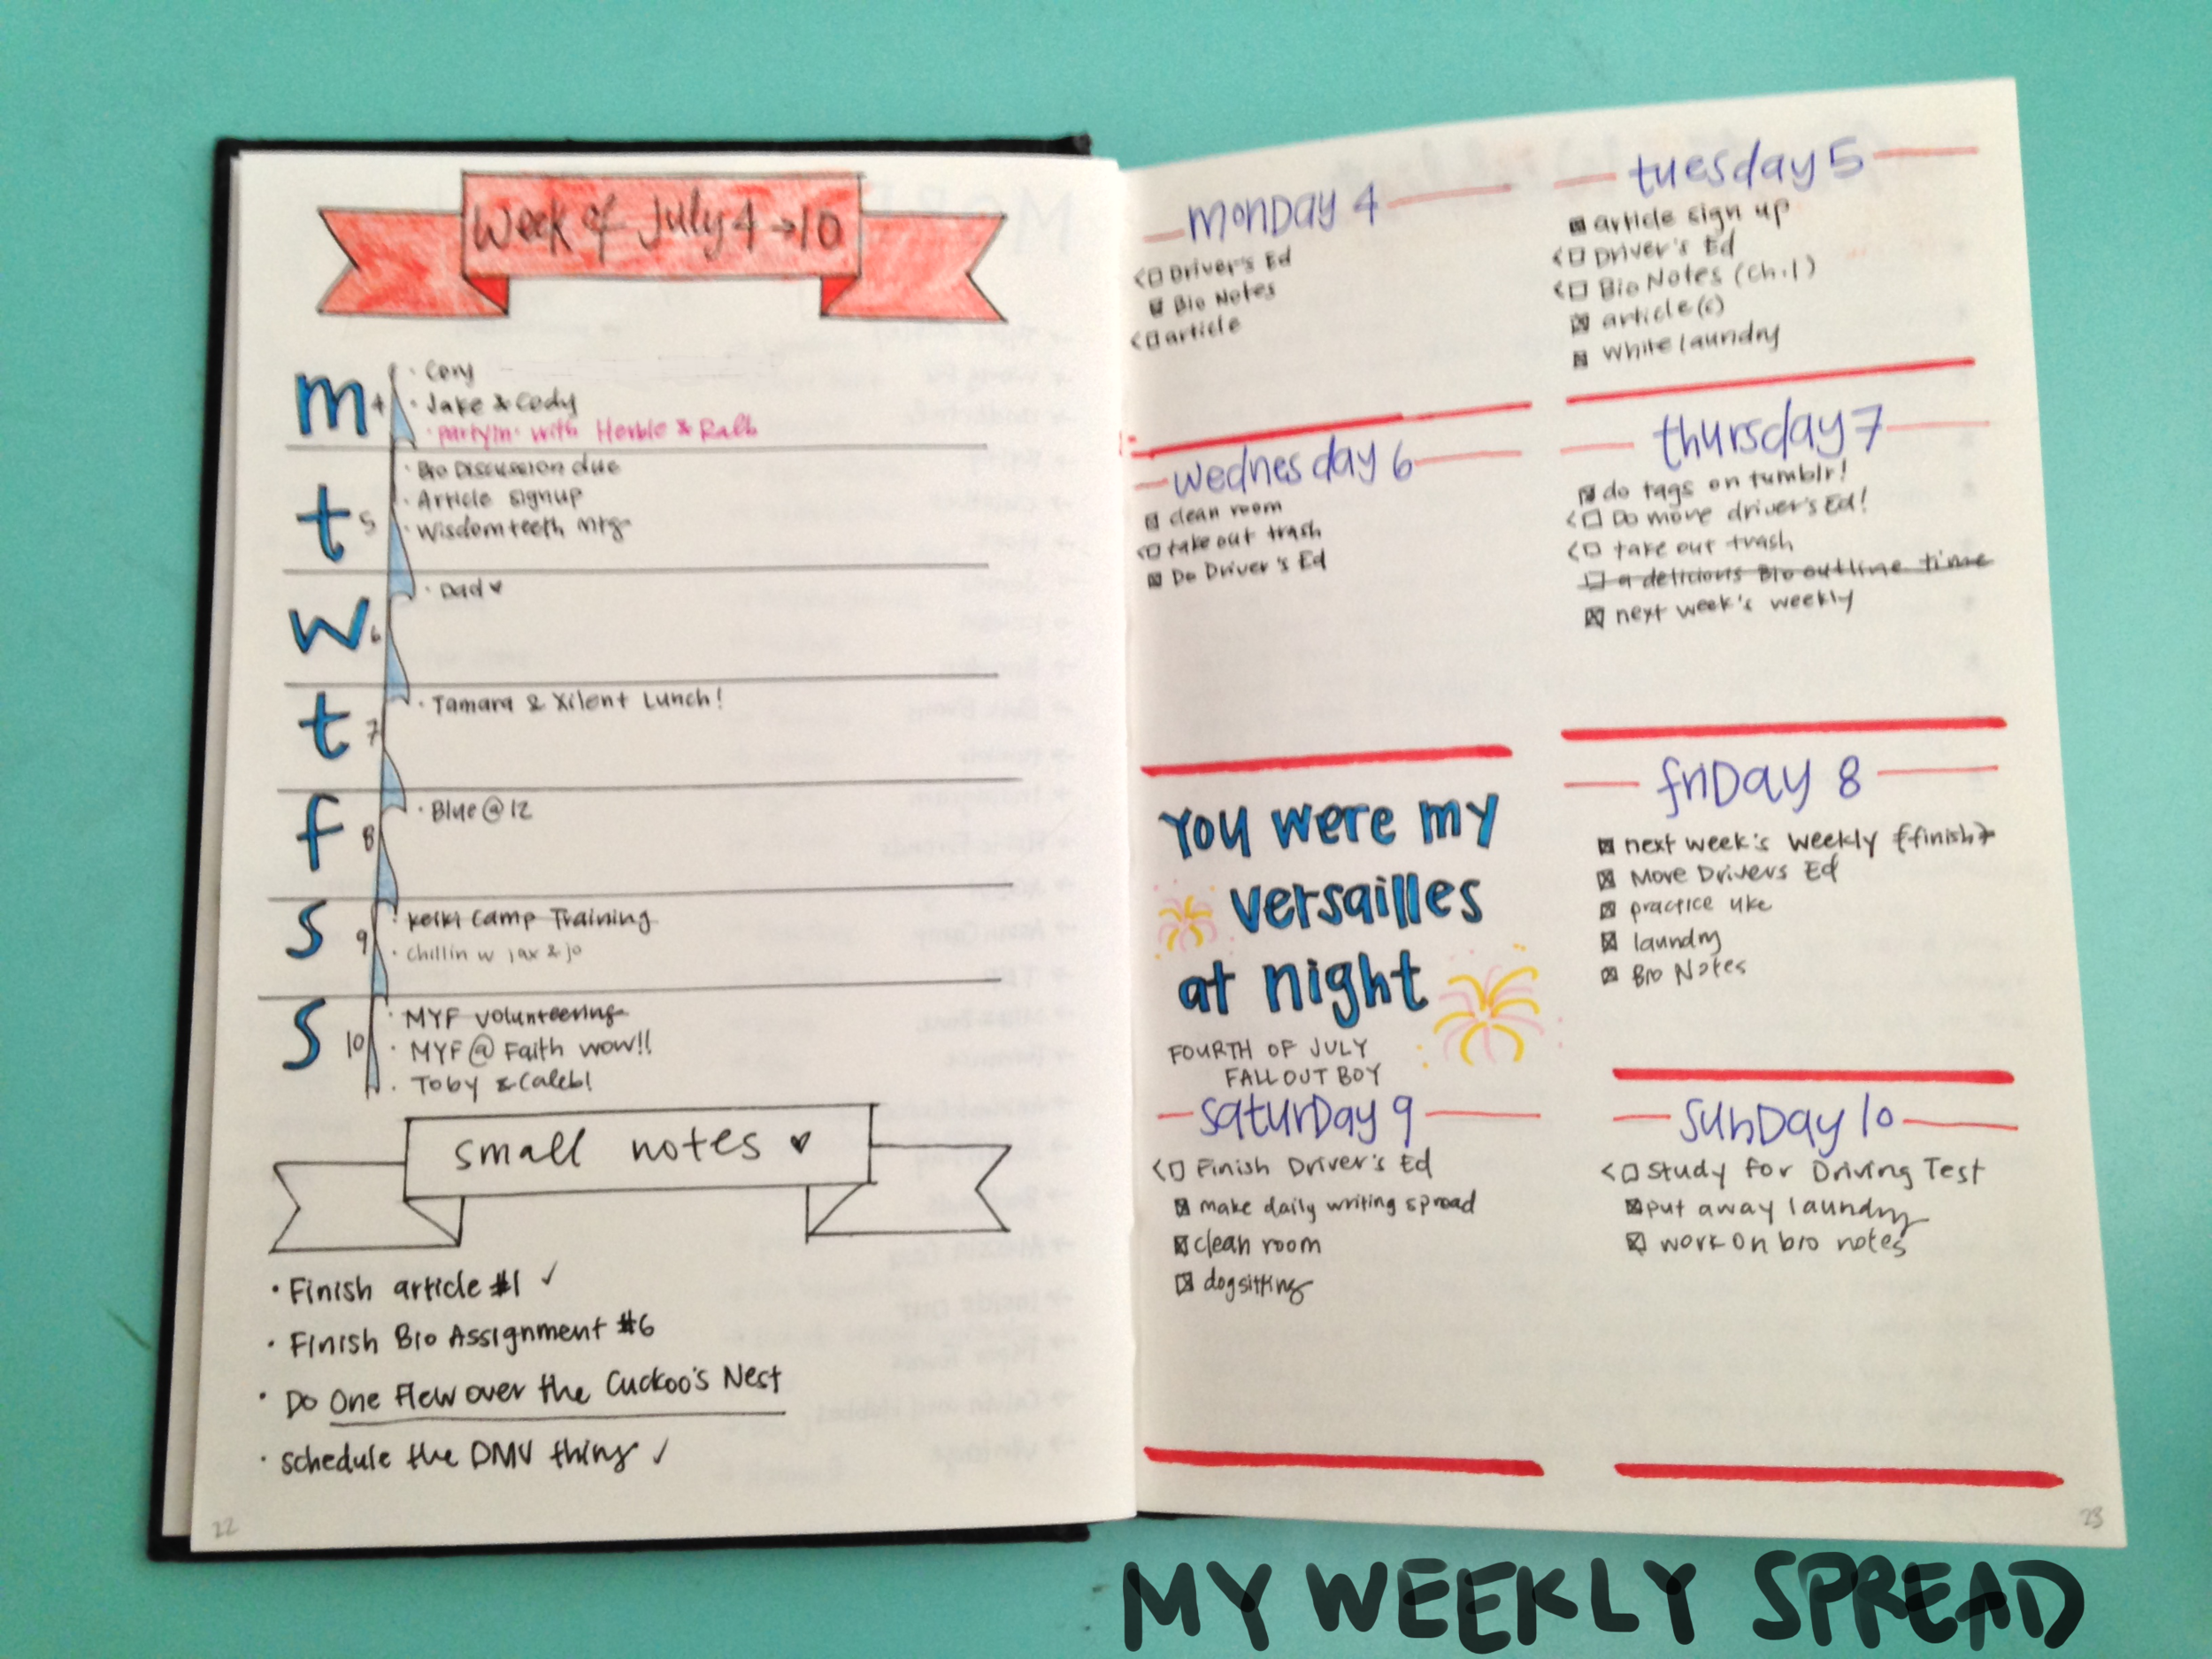 Week of July 4 → 10
m 4
· Cory
· Jake & Cody
· partyin' with Herbie & Ralb
t 5
· Bio Discussion due
· Article signup
· Wisdom teeth mtg
w 6
· Dad ♥
t 7
· Tamara & Xilent Lunch!
f 8
· Blue @ 12
s 9
· Keiki Camp Training
· chillin w jax & jo
s 10
· MYF volunteering
· MYF @ Faith wow!!
· Toby & Caleb!
small notes ♥
· Finish article #1 ✓
· Finish Bio Assignment #6
· Do One Flew over the Cuckoo's Nest
· schedule the DMV thing ✓
22
monDay 4
<☐ Driver's Ed
☒ Bio Notes
<☐ article
tuesday 5
☒ article sign up
<☐ Driver's Ed
<☐ Bio Notes (ch.1)
☒ article(s)
☒ white laundry
wednesday 6
☒ clean room
<☐ take out trash
☒ Do Driver's Ed
thursday 7
☒ do tags on tumblr!
<☐ Do more driver's Ed!
<☐ take out trash
☐ a delicious Bio outline time
☒ next week's weekly
You were my
versailles
at night
FOURTH OF JULY
FALL OUT BOY
friDay 8
☒ next week's weekly {finish}
☒ More Drivers Ed
☒ practice uke
☒ laundry
☒ Bio Notes
saturDay 9
<☐ Finish Driver's Ed
☒ make daily writing spread
☒ clean room
☒ dogsitting
sunDay 10
<☐ Study for Driving Test
☒ put away laundry
☒ work on bio notes
23
MY WEEKLY SPREAD